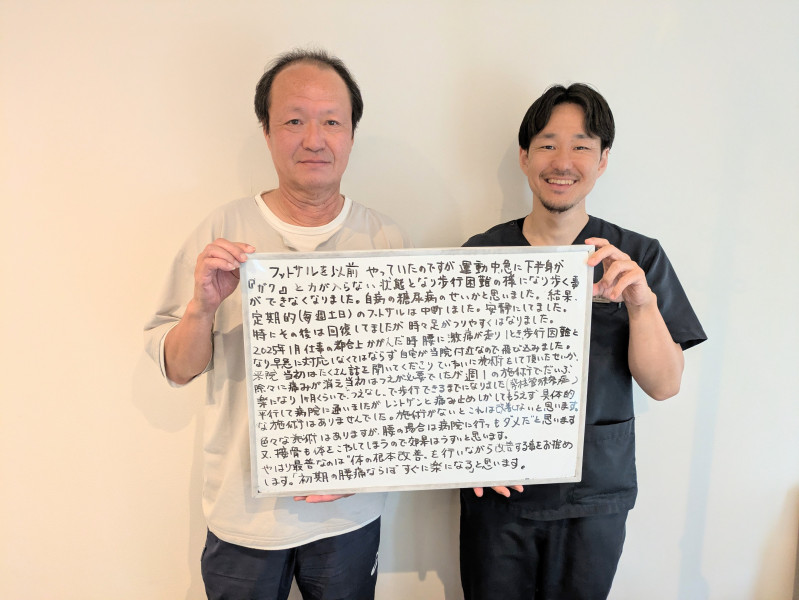 フットサルを以前 やっていたのですが 運動中急に下半身が
『ガク』と力が入らない状態となり歩行困難の様になり歩く事
ができなくなりました。自病の糖尿病のせいかと思いました。結果、
定期的(毎週土日)のフットサルは中断しました。安静にしてました。
特にその後は回復してましたが時々足がつりやすくはなりました。
2025年1月仕事の都合上かがんだ時腰に激痛が走りとき歩行困難と
なり早急に対応しなくてはならず自宅が当院付近なので飛び込みました。
来院当初はたくさん話を聞いてくださり ていねいに施術をして頂いたせいか、
除々に痛みが消え当初はつえが必要でしたが週1の施術でだいぶ
楽になり1ヶ月くらいで、つえなし、で歩行できるまでになりました
平行して病院に通いましたがレントゲンと痛み止めしかしてもらえず具体的
な施術はありませんでした。施術がないとこれは改善しないと思います。
色々な施術はありますが、腰の場合は病院に行ってもダメだと思います
又、接骨も体をこやしてしまうので効果はうすいと思います。
やはり最善なのは"体の根本改善"を行いながら改善する事をお薦め
します。「初期の腰痛ならば」すぐに楽になると思います。